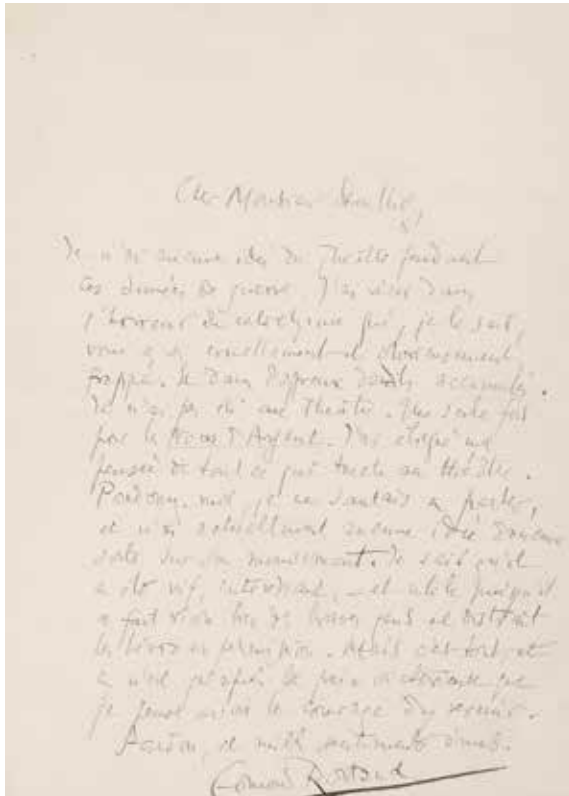 Cher Monsieur
Je n'ai aucune idée du Théâtre pendant
ces années de guerre. J'ai vécu dans
l'horreur du cataclysme qui, je le sais,
vous a si cruellement et
frappé, et dans d'affreux deuils accumulés.
Je n'ai pas été au Théâtre. Une seule fois
pour le d'Argent. J'ai éloigné ma
pensée de tout ce qui touche au théâtre.
Pardonnez-moi, je ne saurais en parler,
et n'ai actuellement aucune idée d'aucune
sorte sur son mouvement. Je sais qu'il
a été vif, intéressant, – et utile puisqu'il
a fait vivre de braves gens et distrait
les héros en permission. Mais c'est tout, et
ce n'est qu'après la paix que
je pense avoir le courage d'y revenir.
Pardon, et mille sentiments
Edmond Rostand